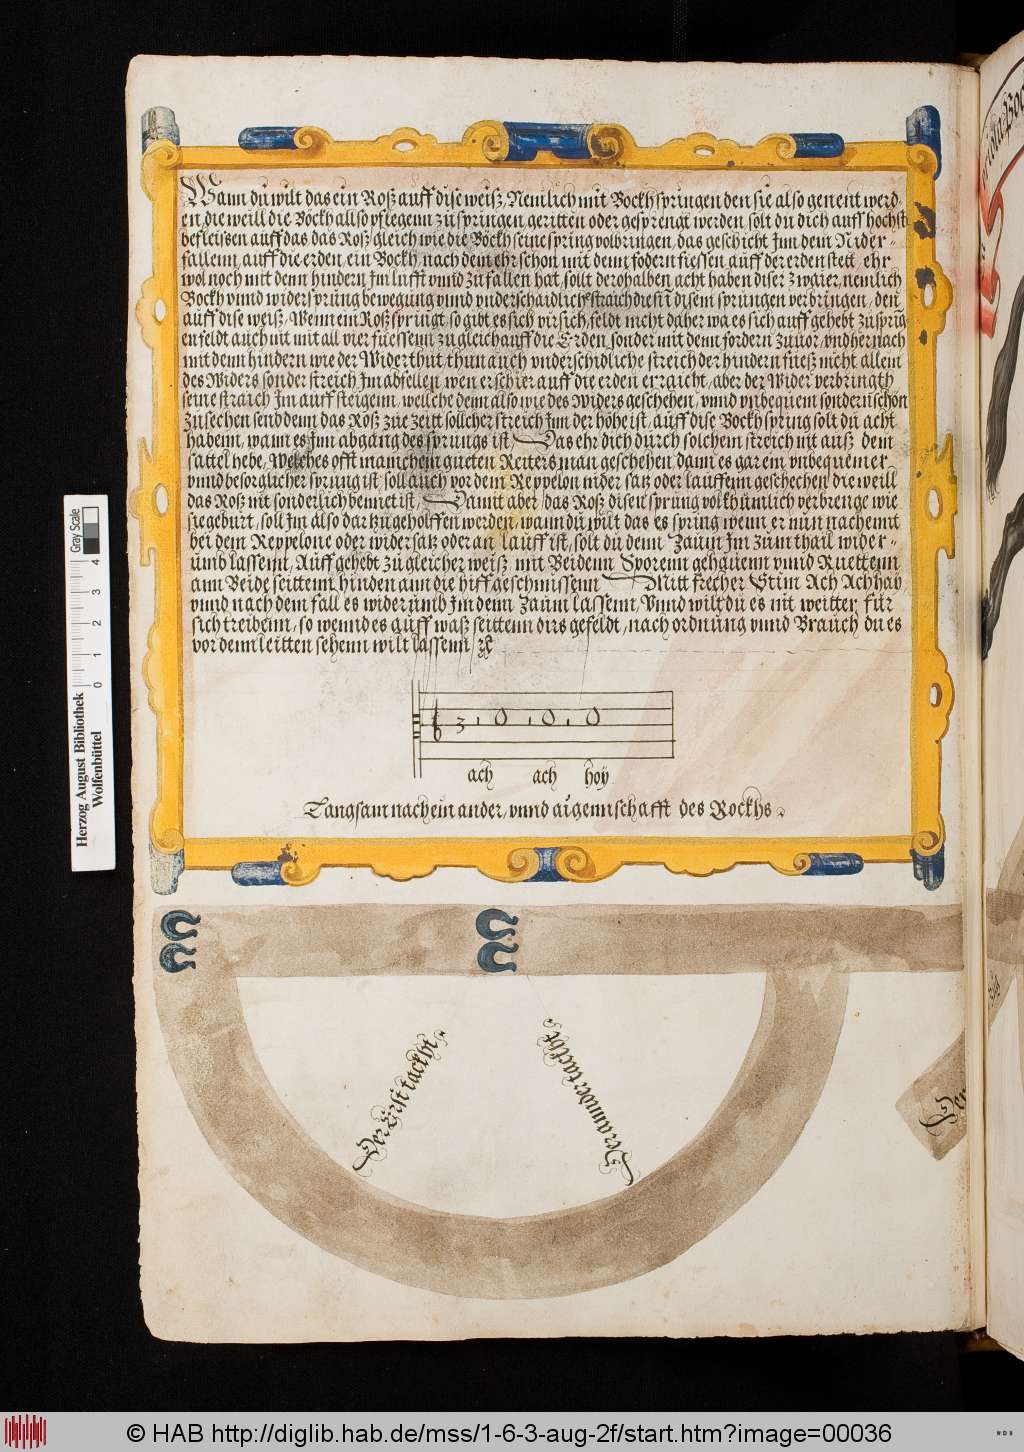 Wann du wilt das ein Roß auff dise weiß, Nemlich mit Bockhspringen den sie also genent werd-
en, die weill die Böckh allso pflegenn zu springen geritten oder gesprengt werden, solt du dich auff höchst
befleissen auff das das Roß gleich wie die Böckh seine spring volbringen, das geschicht Jnn dem Nider-
fallenn, auff die erden, ein Bockh, nach dem ehr schon mit denn fodern fiessen auff der erden stett, ehr
wol noch mit denn hindern Jm lufft vnnd zu fallen hat, sollt derohalben acht haben diser zwaier, nemlich
Bockh vnnd widersprüng bewegung vnnd vnderschaidliche straich die sÿ in disem sprungen verbringen, den
auff dise weiß, Wenn ein Roß springt so gibt es sich vir sich, feldt nicht daher wa es sich auff gehebt zu sprig-
en feldt auch nit mit all vier fuessenn zu gleich auff die Erden, sonder mit denn fordern zuuor, vnd hernach
mit denn hindern wie der Wider thut, thun auch vnderschidliche streich der hindern fueß nicht allein
des Widers sonder streich Jm abfellen, wen er schier auff die erden erraicht, aber der Wider verbringth
seine straich Jm auff steigenn, wellche denn also wie des Widers geschehen, vnnd vnbequem sonder nit schön
zu sechen send denn das Roß zue zeitt sollcher streich Jnn der höhe ist, auff dise Bockhspring solt du acht
habenn, wann es Jnn abgang des sprungs ist Das ehr dich durch solchem streich nit auß dem
sattel hebe, Welches offt manichem gueten Reitersman geschehen dann es gar ein vnbequemer
vnnd besorglicher sprung ist, soll auch vor dem Reppelon nider satz oder lauffenn geschechen, die weill
das Roß nit sonderlich bennet ist, Damit aber das Roß disen sprung volkhumlich verbrenge wie
sie geburt, soll Jm also dartzu geholffen werden, wann du wilt das es spring wenn er nun nachennt
bei dem Reppelone oder widersatz oder an lauff ist, solt du denn Zaum Jm zum thail wider-
umb lassenn, Auff gehebt zu gleicher weiß mit Beidenn Sporenn gehauenn vnnd Ruettenn
ann Beide seittenn hinden ann die hiff geschmissenn Mitt frecher Stim Ach Ach haÿ
vnnd nach dem fall es widerumb Jm denn Zaum lassenn, Vnnd wilt du es nit weitter für
sich treibenn, so wennd es auff waß seittenn dirs gefeldt, nach ordnung vnnd Brauch du es
vor denn leitten sehenn wilt lassenn
3
ach ach hoÿ
Langsam nach ein ander, vnnd aigennschafft des Bockhs
Der Erst tackht
Der annder tackht
Herzog August Bibliothek
Wolfenbüttel
0 1 2 3 4
Gray Scale
© HAB http://diglib.hab.de/mss/1-6-3-aug-2f/start.htm?image=00036